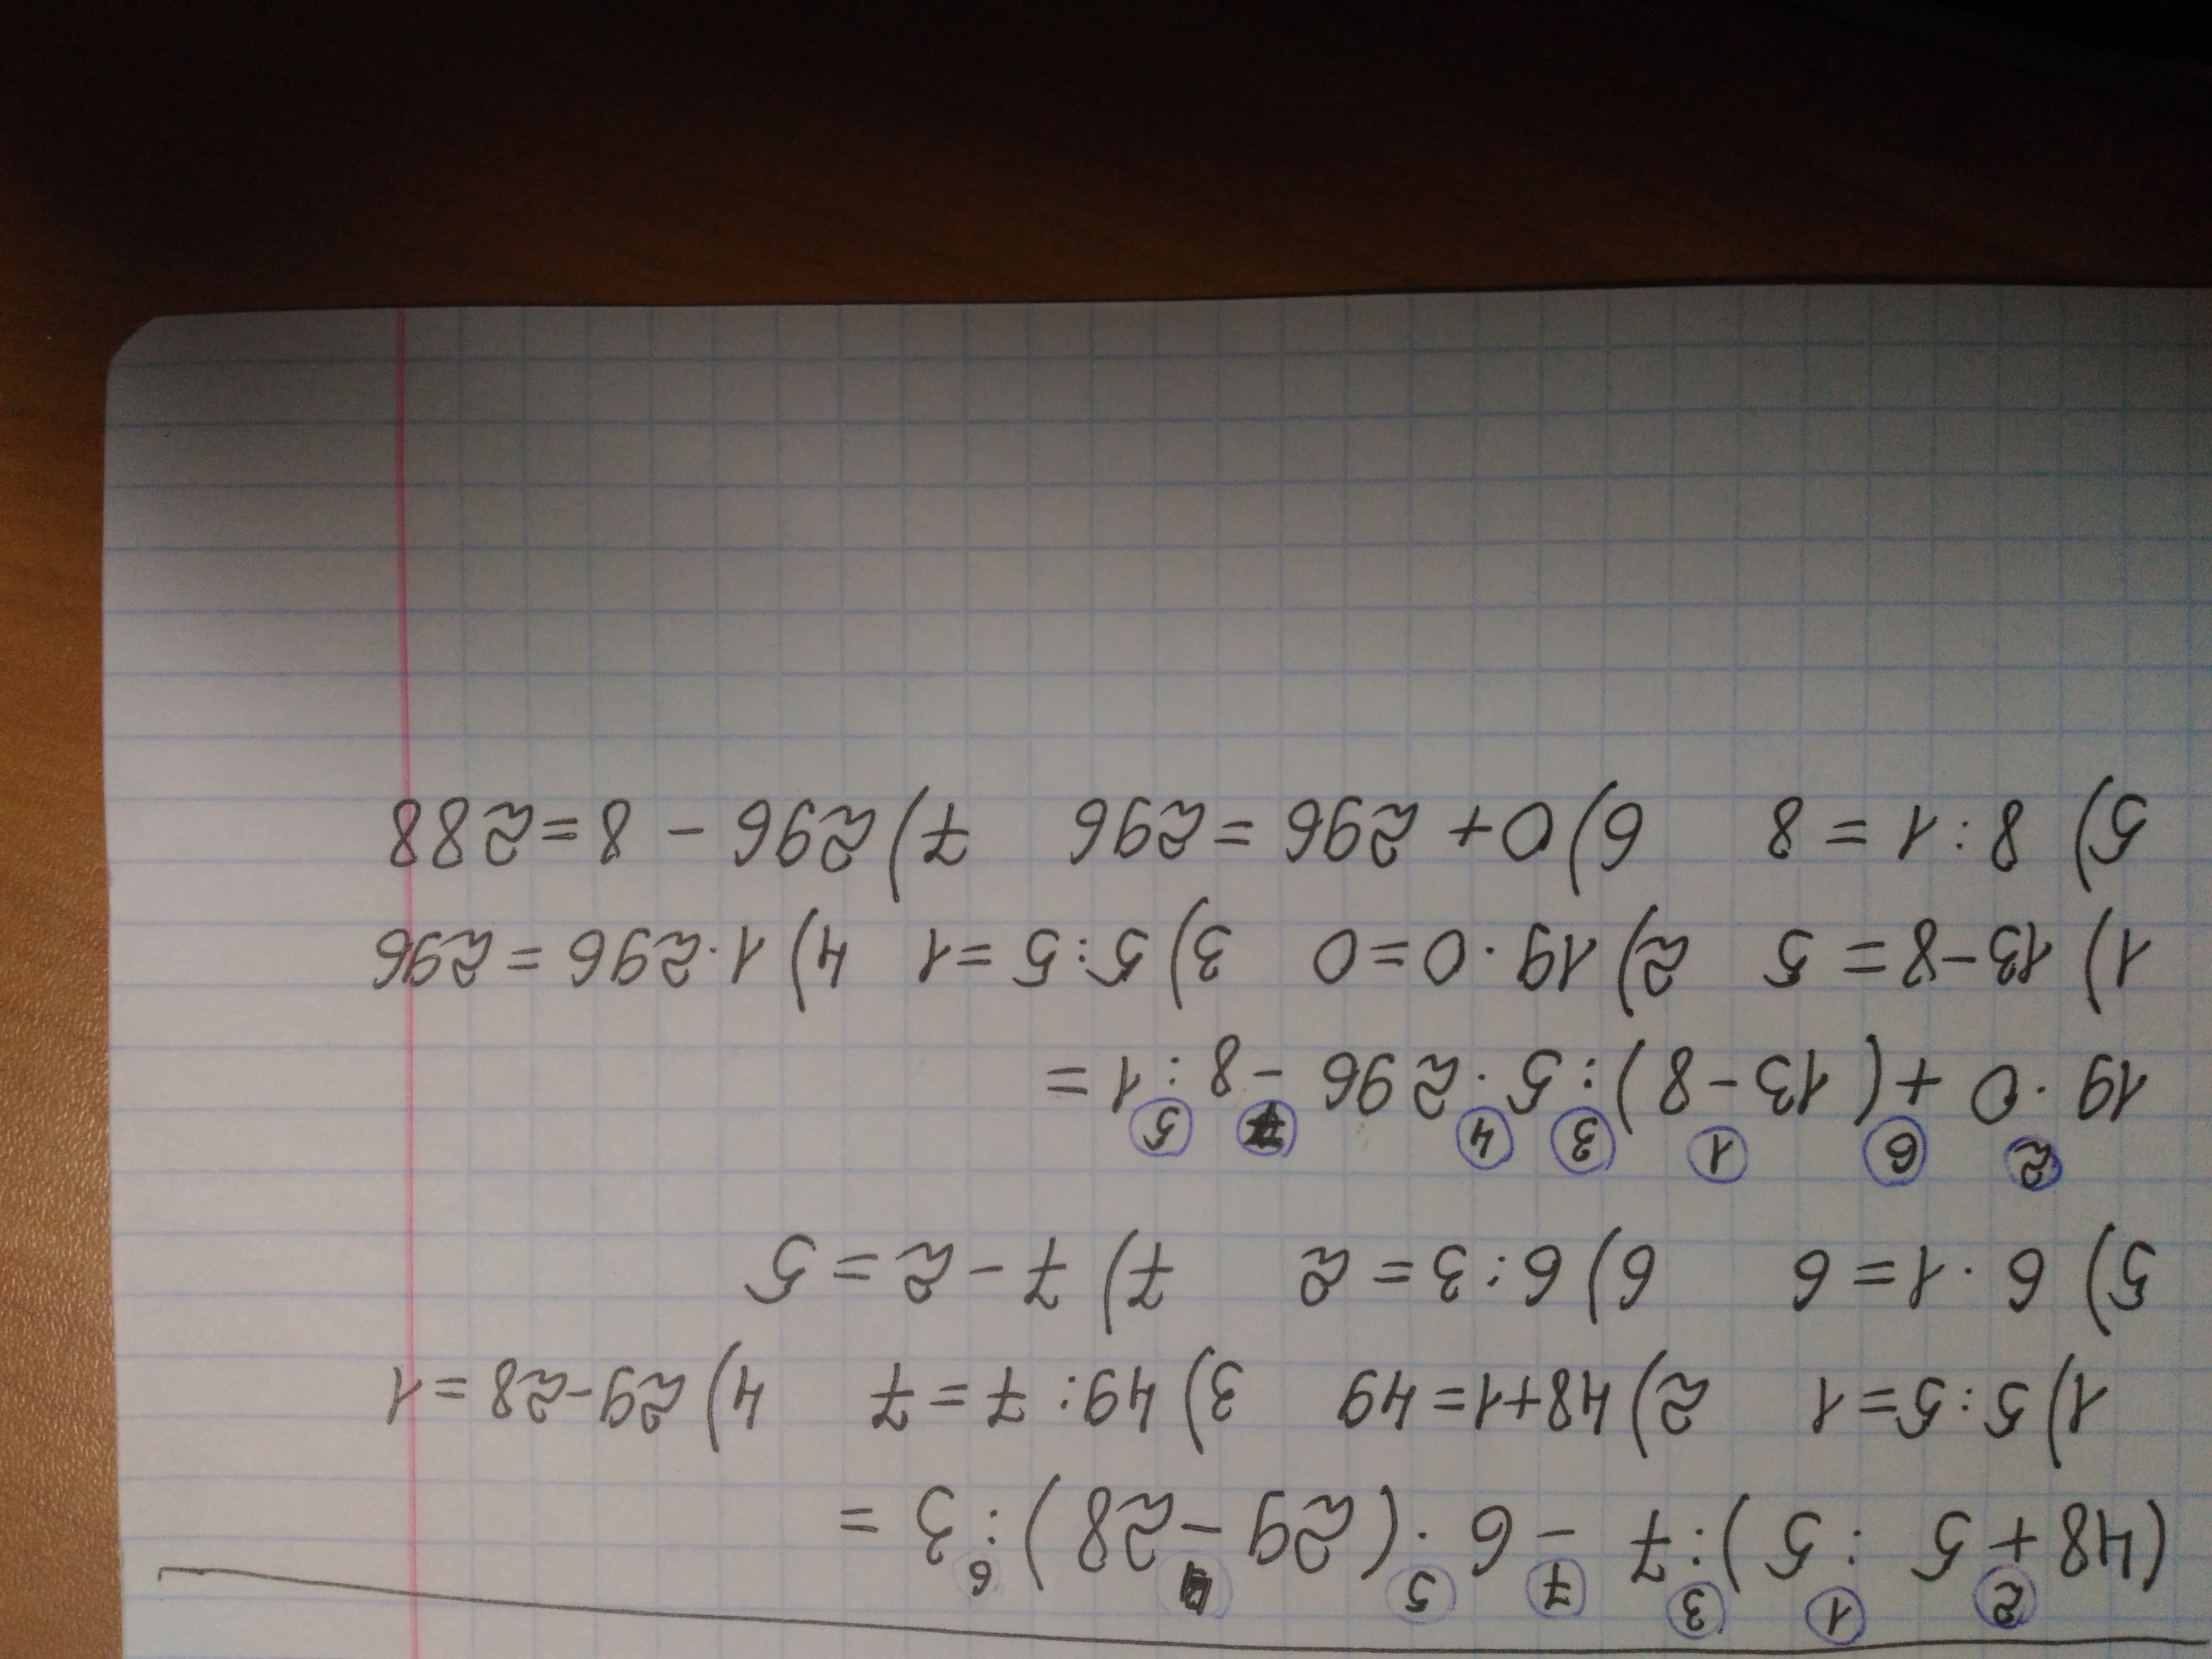 2 1 3 7 5 4 6
(48+5 : 5) : 7 - 6 · (29 - 28) : 3 =
1) 5 : 5 = 1 2) 48+1 = 49 3) 49 : 7 = 7 4) 29-28 = 1
5) 6 · 1 = 6 6) 6 : 3 = 2 7) 7 - 2 = 5
2 6 1 3 4 7 5
19 · 0 + (13 - 8) : 5 · 296 - 8 : 1 =
1) 13-8 = 5 2) 19 · 0 = 0 3) 5 : 5 = 1 4) 1 · 296 = 296
5) 8 : 1 = 8 6) 0 + 296 = 296 7) 296 - 8 = 288